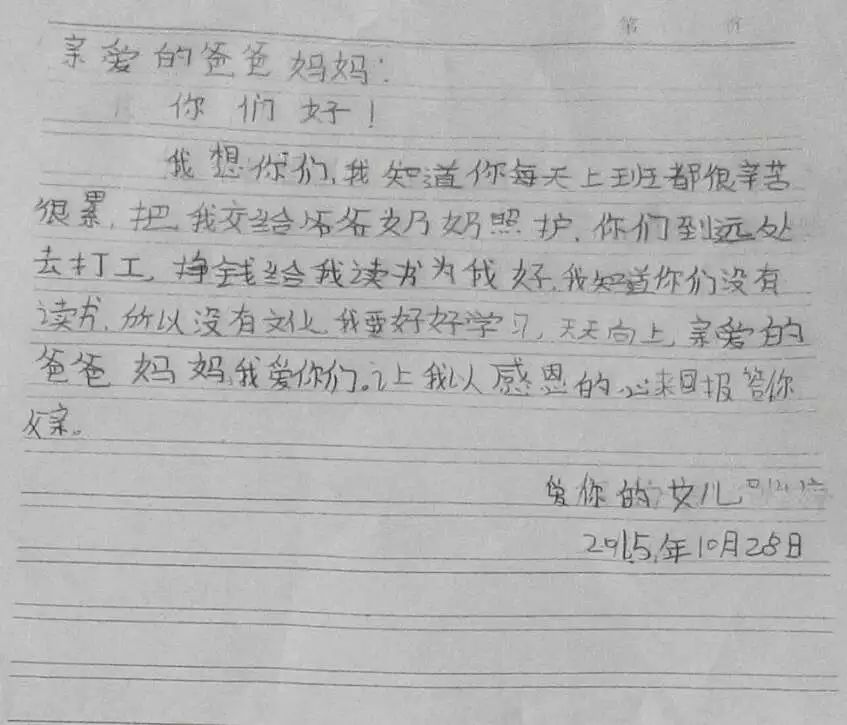 第 份
亲爱的爸爸妈妈:
你们好!
我想你们,我知道你每天上班都很辛苦
很累,把我交给爷爷奶奶照护,你们到远处
去打工,挣钱给我读书为我好,我知道你们没有
读书,所以没有文化,我要好好学习,天天向上,亲爱的
爸爸妈妈,我爱你们。让我以感恩的心来回报答你
父亲。
爱你的女儿
2015年10月28日